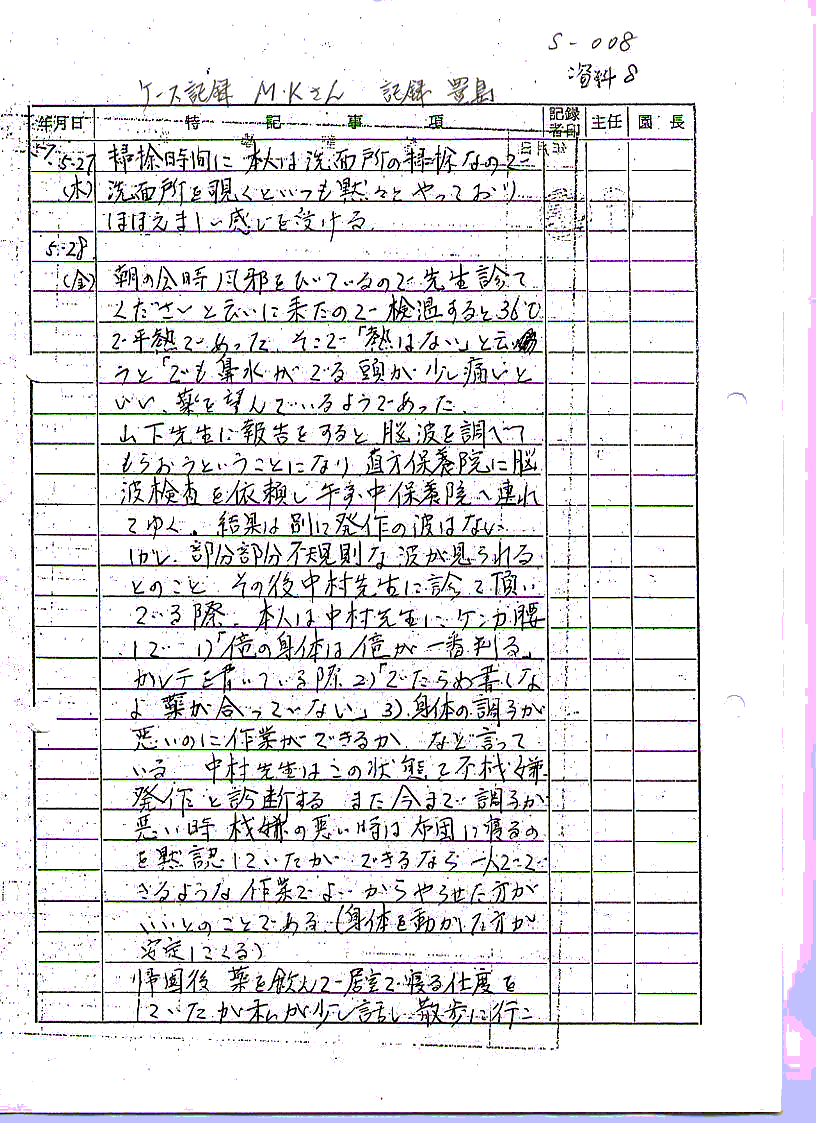 S-008
資料8
ケース記録 M・Kさん 記録 豊島
年月日 特記事項 記録者印 主任 園長
57. 5.27 掃除時間に本人は洗面所の掃除なので
(木) 洗面所を覗くといつも黙々とやっており
ほほえましい感じを受ける.
5.28
(金) 朝の会時 風邪をひいているので先生診て
くださいと云いに来たので検温すると36℃
で平熱であった. そこで「熱はない」と云
うと「でも鼻水がでる頭が少し痛いと
いい、薬を望んでいるようであった.
山下先生に報告をすると脳波を調べて
もらおうということになり 直方保養院に脳
波検査を依頼し午前中保養院へ連れ
てゆく。結果は別に発作の波はない.
しかし、部分部分不規則な波が見られる
とのこと その後中村先生に診て頂い
でる際、本人は中村先生にケンカ腰
して 1)「俺の身体は俺が一番判る」
カルテを書いている際 2)「でたらめ書くな
よ 薬が合っていない」3)身体の調子が
悪いのに作業ができるか など言って
いる 中村先生はこの状態で不機嫌
発作と診断する また今まで調子が
悪い時 機嫌の悪い時は布団に寝るの
を黙認していたが できるなら一人でで
きるような作業でよいからやらせた方が
いいとのことである.(身体を動かした方が
安定してくる)
帰園後 薬を飲んで居室で寝る仕度を
していたが私が少し話し 散歩に行こ